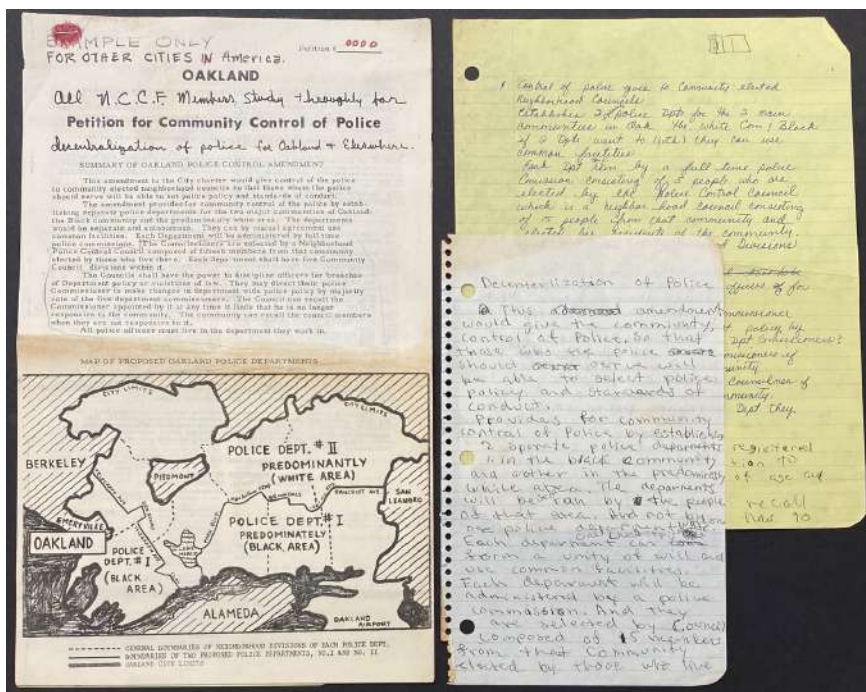 EXAMPLE ONLY
FOR OTHER CITIES IN America.
Petition # 0000
OAKLAND
All N.C.C.F. Members Study throughly for
Petition for Community Control of Police
decentralization of police for Oakland & Elsewhere.
SUMMARY OF OAKLAND POLICE CONTROL AMENDMENT
This amendment to the City charter would give control of the police
to community elected neighborhood councils so that those whom the police
should serve will be able to set police policy and standards of conduct.
The amendment provides for community control of the police by estab-
lishing separate police departments for the two major communities of Oakland,
the Black community and the predominately white area. The departments
would be separate and autonomous. They can by mutual agreement use
common facilities. Each Department will be administered by full time
police commissions. The Commissioners are selected by a Neighborhood
Police Control Council composed of fifteen members from that community
elected by those who live there. Each department shall have five Community
Council divisions within it.
The Councils shall have the power to discipline officers for breaches
of Department policy or violations of law. They may direct their police
Commissioner to make changes in department wide police policy by majority
vote of the five department commissioners. The Council can recall the
Commissioner appointed by it at any time it finds that he is no longer
responsive to the community. The community can recall the council members
when they are not responsive to it.
All police officers must live in the department they work in.
MAP OF PROPOSED OAKLAND POLICE DEPARTMENTS
CITY LIMITS
CITY LIMITS
BERKELEY
PIEDMONT
POLICE DEPT. # II
PREDOMINANTLY
(WHITE AREA)
EMERYVILLE
OAKLAND
POLICE
DEPT. # I
(BLACK AREA)
POLICE DEPT. # I
PREDOMINATELY
(BLACK AREA)
BANCROFT AVE.
SAN
LEANDRO
ALAMEDA
OAKLAND
AIRPORT
GENERAL BOUNDARIES OF NEIGHBORHOOD DIVISIONS OF EACH POLICE DEPT.
BOUNDARIES OF TWO PROPOSED POLICE DEPARTMENTS, NO.I AND NO. II
OAKLAND CITY LIMITS
Control of police goes to Community elected
Neighborhood Councils
Establishes 2 Police Dpts for the 2 main
communities in Oak the white Com / Black
if 2 Dpts want to they can use
common facilities
Each Dpt run by a full time police
Comission consisting of 5 people who are
elected by the Police Control Council
which is a neighbor hood council consisting
of 15 people from that community and
elected by residents of the community.
Divisions
officers of for
ommissioner
policy by
Dpt Comissioners?
omissioners if
munity
Councilmen if
mmunity.
Dept they
registered
of age and
recall
has to
Decenterilization of Police
This amendment
would give the community,
control of Police. So that
those who the police
should serve will
be able to select police
policy and standards of
conduct.
Provides for community
control of Police by establishing
2 seperate police departments
1 in the black community
and another in the predominately
white area. The deparments
will be ran by the people
of that area and not by
one police department.
Each department can
form a unity of will and
use common facilities.
Each deparment will be
administered by a police
commassion. And they
are selected by Council
composed of 15 members
from that Community
elected by those who live